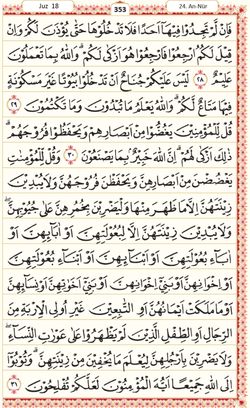 Juz 18 353 24. An-Nûr
فَإِن لَّمْ تَجِدُوا فِيهَا أَحَدًا فَلَا تَدْخُلُوهَا حَتَّىٰ يُؤْذَنَ لَكُمْ ۖ وَإِن
قِيلَ لَكُمُ ارْجِعُوا فَارْجِعُوا ۖ هُوَ أَزْكَىٰ لَكُمْ ۚ وَاللَّهُ بِمَا تَعْمَلُونَ
عَلِيمٌ ٢٨ لَّيْسَ عَلَيْكُمْ جُنَاحٌ أَن تَدْخُلُوا بُيُوتًا غَيْرَ مَسْكُونَةٍ
فِيهَا مَتَاعٌ لَّكُمْ ۚ وَاللَّهُ يَعْلَمُ مَا تُبْدُونَ وَمَا تَكْتُمُونَ ٢٩
قُل لِّلْمُؤْمِنِينَ يَغُضُّوا مِنْ أَبْصَارِهِمْ وَيَحْفَظُوا فُرُوجَهُمْ ۚ
ذَٰلِكَ أَزْكَىٰ لَهُمْ ۗ إِنَّ اللَّهَ خَبِيرٌ بِمَا يَصْنَعُونَ ٣٠ وَقُل لِّلْمُؤْمِنَاتِ
يَغْضُضْنَ مِنْ أَبْصَارِهِنَّ وَيَحْفَظْنَ فُرُوجَهُنَّ وَلَا يُبْدِينَ
زِينَتَهُنَّ إِلَّا مَا ظَهَرَ مِنْهَا ۖ وَلْيَضْرِبْنَ بِخُمُرِهِنَّ عَلَىٰ جُيُوبِهِنَّ ۖ
وَلَا يُبْدِينَ زِينَتَهُنَّ إِلَّا لِبُعُولَتِهِنَّ أَوْ آبَائِهِنَّ أَوْ
آبَاءِ بُعُولَتِهِنَّ أَوْ أَبْنَائِهِنَّ أَوْ أَبْنَاءِ بُعُولَتِهِنَّ
أَوْ إِخْوَانِهِنَّ أَوْ بَنِي إِخْوَانِهِنَّ أَوْ بَنِي أَخَوَاتِهِنَّ أَوْ نِسَائِهِنَّ
أَوْ مَا مَلَكَتْ أَيْمَانُهُنَّ أَوِ التَّابِعِينَ غَيْرِ أُولِي الْإِرْبَةِ مِنَ
الرِّجَالِ أَوِ الطِّفْلِ الَّذِينَ لَمْ يَظْهَرُوا عَلَىٰ عَوْرَاتِ النِّسَاءِ ۖ
وَلَا يَضْرِبْنَ بِأَرْجُلِهِنَّ لِيُعْلَمَ مَا يُخْفِينَ مِن زِينَتِهِنَّ ۚ وَتُوبُوا
إِلَى اللَّهِ جَمِيعًا أَيُّهَ الْمُؤْمِنُونَ لَعَلَّكُمْ تُفْلِحُونَ ٣١